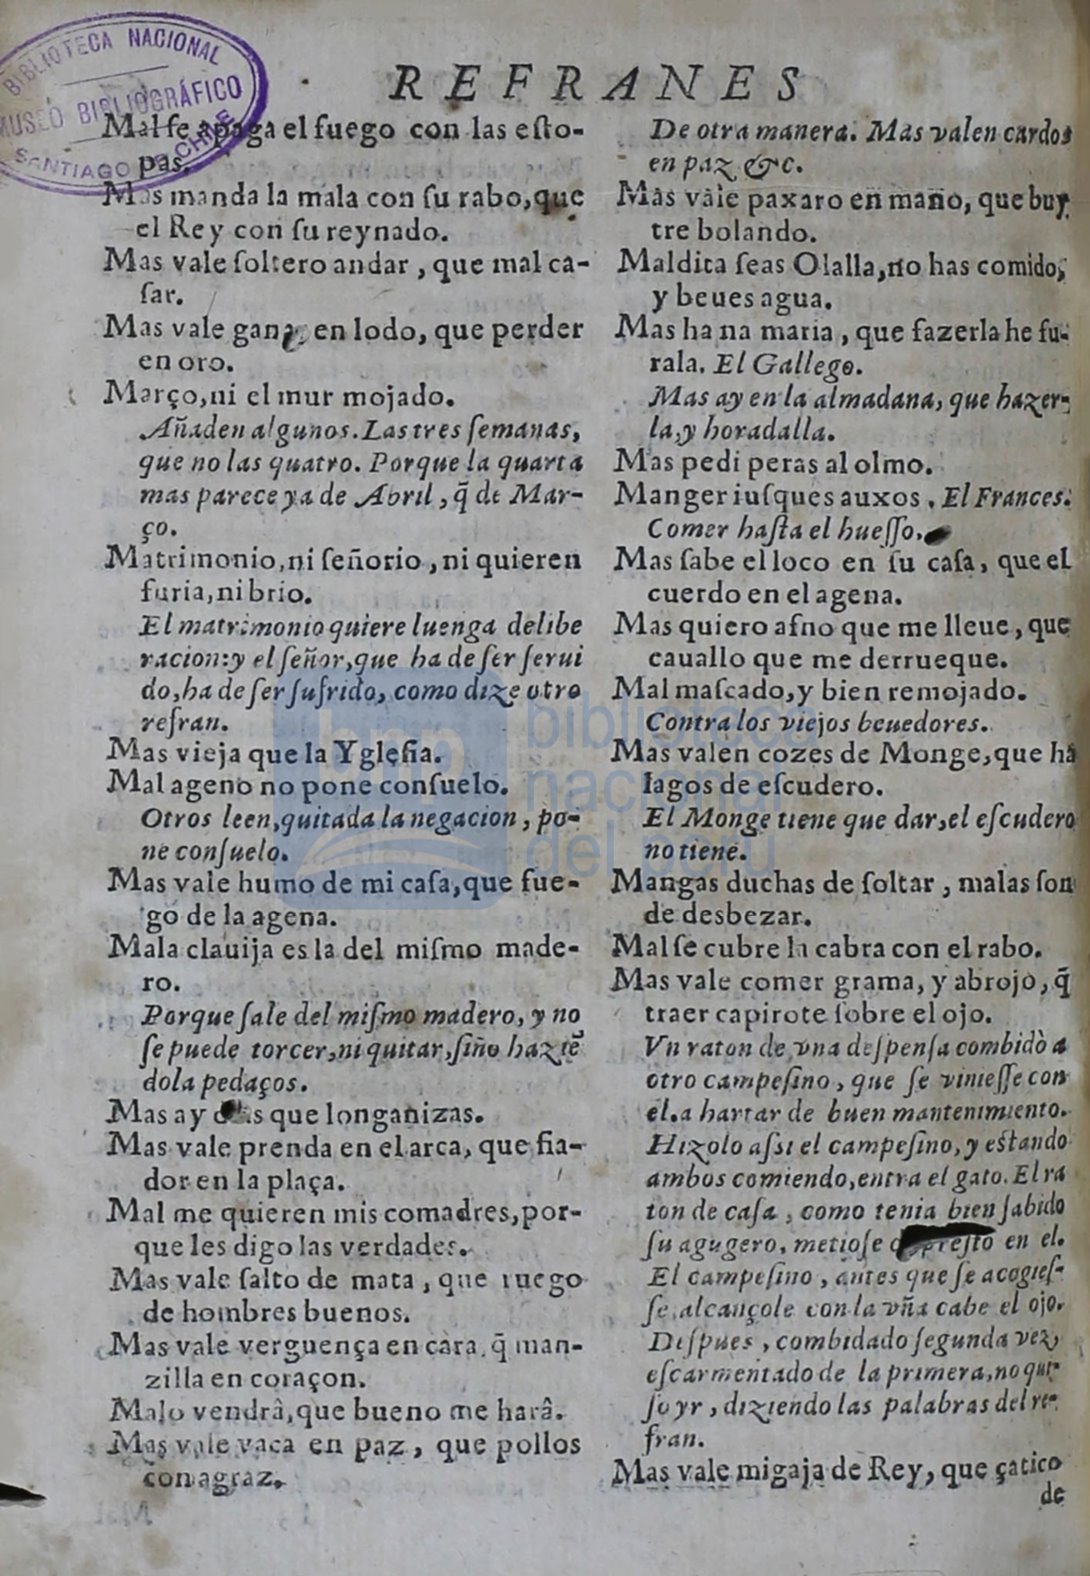 BIBLIOTECA NACIONAL
MUSEO BIBLIOGRÁFICO
SANTIAGO DE CHILE
REFRANES
Mal ſe apaga el fuego con las eſto-
pas.
Mas manda la mala con ſu rabo, que
el Rey con ſu reynado.
Mas vale ſoltero andar, que mal ca-
ſar.
Mas vale gana en lodo, que perder
en oro.
Março, ni el mur mojado.
Añaden algunos. Las tres ſemanas,
que no las quatro. Porque la quarta
mas parece ya de Abril, q̃ de Mar-
ço.
Matrimonio, ni ſeñorio, ni quieren
furia, ni brio.
El matrimonio quiere luenga delibe
racion: y el ſeñor, que ha de ſer ſerui
do, ha de ſer ſufrido, como dize otro
refran.
Mas vieja que la Ygleſia.
Mal ageno no pone conſuelo.
Otros leen, quitada la negacion, po-
ne conſuelo.
Mas vale humo de mi caſa, que fue-
go de la agena.
Mala clauija es la del miſmo made-
ro.
Porque ſale del miſmo madero, y no
ſe puede torcer, ni quitar, ſino haziẽ
dola pedaços.
Mas ay que longanizas.
Mas vale prenda en el arca, que fia-
dor en la plaça.
Mal me quieren mis comadres, por-
que les digo las verdades.
Mas vale ſalto de mata, que ruego
de hombres buenos.
Mas vale verguença en cara, q̃ man-
zilla en coraçon.
Malo vendrâ, que bueno me harâ.
Mas vale vaca en paz, que pollos
con agraz.
De otra manera. Mas valen cardos
en paz &c.
Mas vale paxaro en mano, que buy
tre bolando.
Maldita ſeas Olalla, no has comido,
y beues agua.
Mas ha na maria, que fazerla he fu-
rala. El Gallego.
Mas ay en la almadana, que hazer-
la, y horadalla.
Mas pedi peras al olmo.
Manger iuſques auxos. El Frances.
Comer haſta el hueſſo.
Mas ſabe el loco en ſu caſa, que el
cuerdo en el agena.
Mas quiero aſno que me lleue, que
cauallo que me derrueque.
Mal maſcado, y bien remojado.
Contra los viejos beuedores.
Mas valen cozes de Monge, que ha
lagos de eſcudero.
El Monge tiene que dar, el eſcudero
no tiene.
Mangas duchas de ſoltar, malas ſon
de desbezar.
Mal ſe cubre la cabra con el rabo.
Mas vale comer grama, y abrojo, q̃
traer capirote ſobre el ojo.
Vn raton de vna deſpenſa combidò a
otro campeſino, que ſe vinieſſe con
el. a hartar de buen mantenimiento.
Hizolo aſsi el campeſino, y eſtando
ambos comiendo, entra el gato. El ra
ton de caſa, como tenia bien ſabido
ſu agugero, metioſe en el.
El campeſino, antes que ſe acogieſ-
ſe, alcançole con la vña cabe el ojo.
Deſpues, combidado ſegunda vez,
eſcarmentado de la primera, no qui-
ſo yr, diziendo las palabras del re-
fran.
Mas vale migaja de Rey, que çatico
de
bnp biblioteca
nacional
del perú